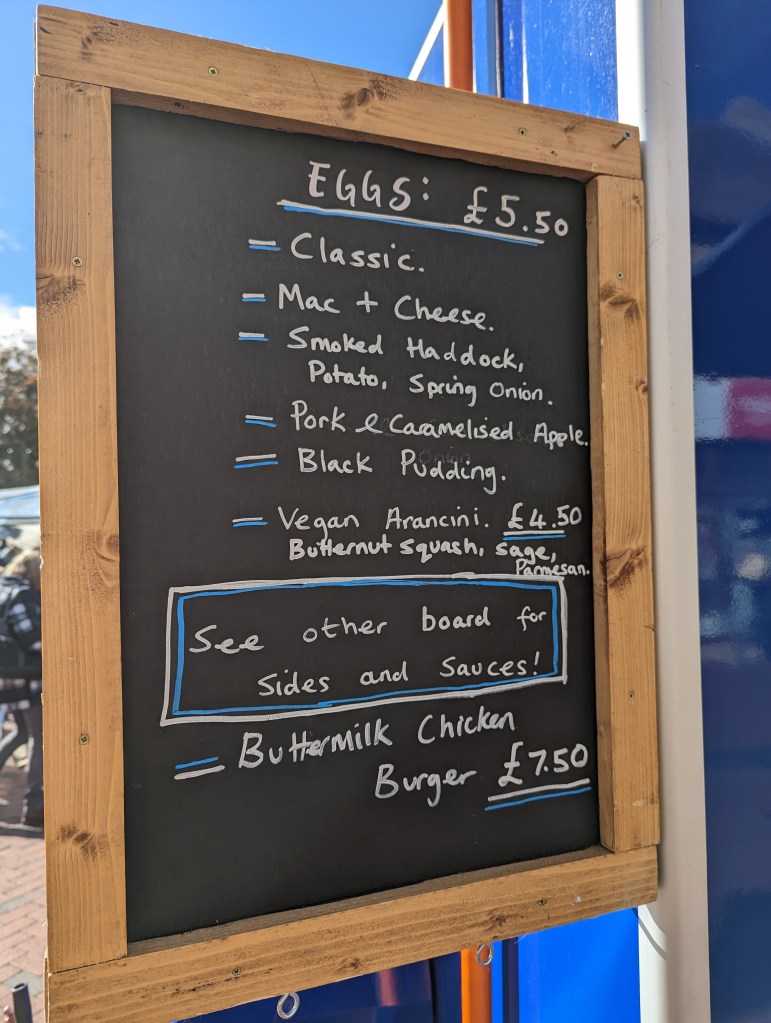 EGGS: £5.50
Classic.
Mac + Cheese.
Smoked Haddock,
Potato, Spring Onion.
Pork & Caramelised Apple.
Black Pudding.
Vegan Arancini. £4.50
Butternut Squash, Sage,
Parmesan.
See other board for
Sides and Sauces!
Buttermilk Chicken
Burger £7.50